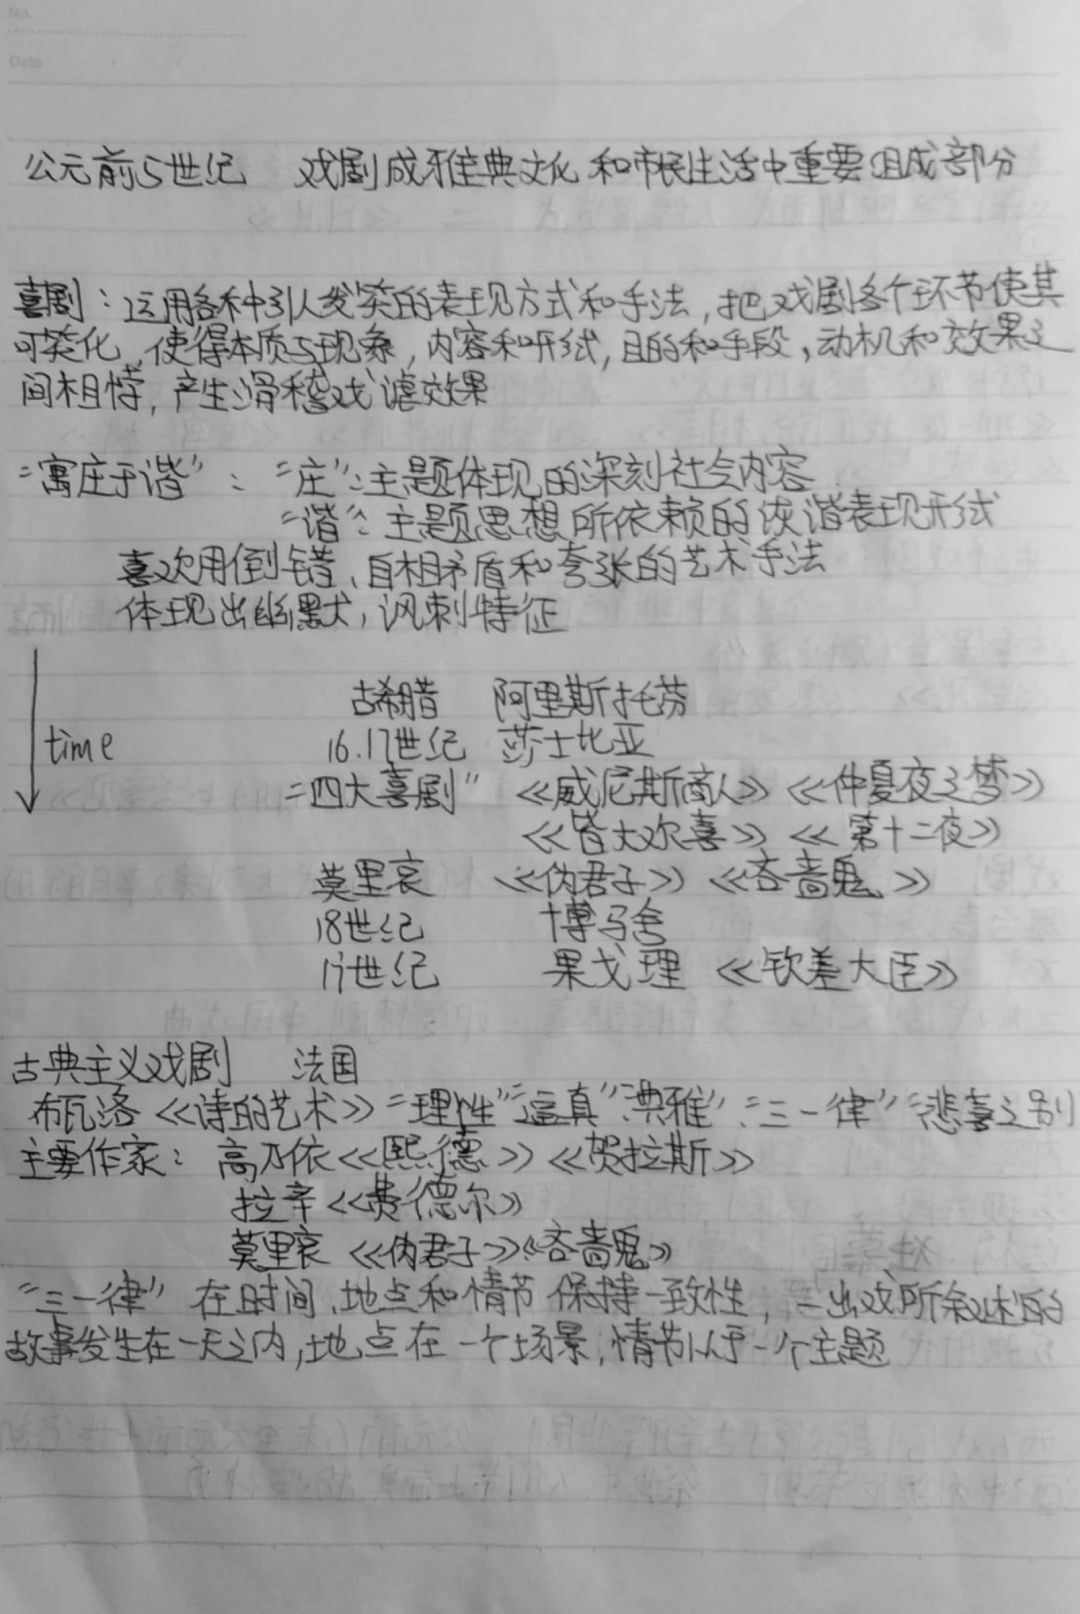 No.
Date
公元前5世纪 戏剧成雅典文化和市民生活中重要组成部分
喜剧：运用各种引人发笑的表现方式和手法，把戏剧各个环节使其
可笑化，使得本质与现象，内容和形式，目的和手段，动机和效果之
间相悖，产生滑稽戏谑效果
“寓庄于谐”：“庄”：主题体现的深刻社会内容
“谐”：主题思想所依赖的诙谐表现形式
喜欢用倒错、自相矛盾和夸张的艺术手法
体现出幽默，讽刺特征
古希腊 阿里斯托芬
time 16.17世纪 莎士比亚
“四大喜剧” 《威尼斯商人》《仲夏夜之梦》
《皆大欢喜》《第十二夜》
莫里哀 《伪君子》《吝啬鬼》
18世纪 博马舍
17世纪 果戈理 《钦差大臣》
古典主义戏剧 法国
布瓦洛《诗的艺术》“理性”“逼真”“典雅”“三一律”“悲喜之别
主要作家：高乃依《熙德》《贺拉斯》
拉辛《费德尔》
莫里哀《伪君子》《吝啬鬼》
“三一律” 在时间、地点和情节保持一致性，一出戏所叙述的
故事发生在一天之内，地点在一个场景，情节从于一个主题